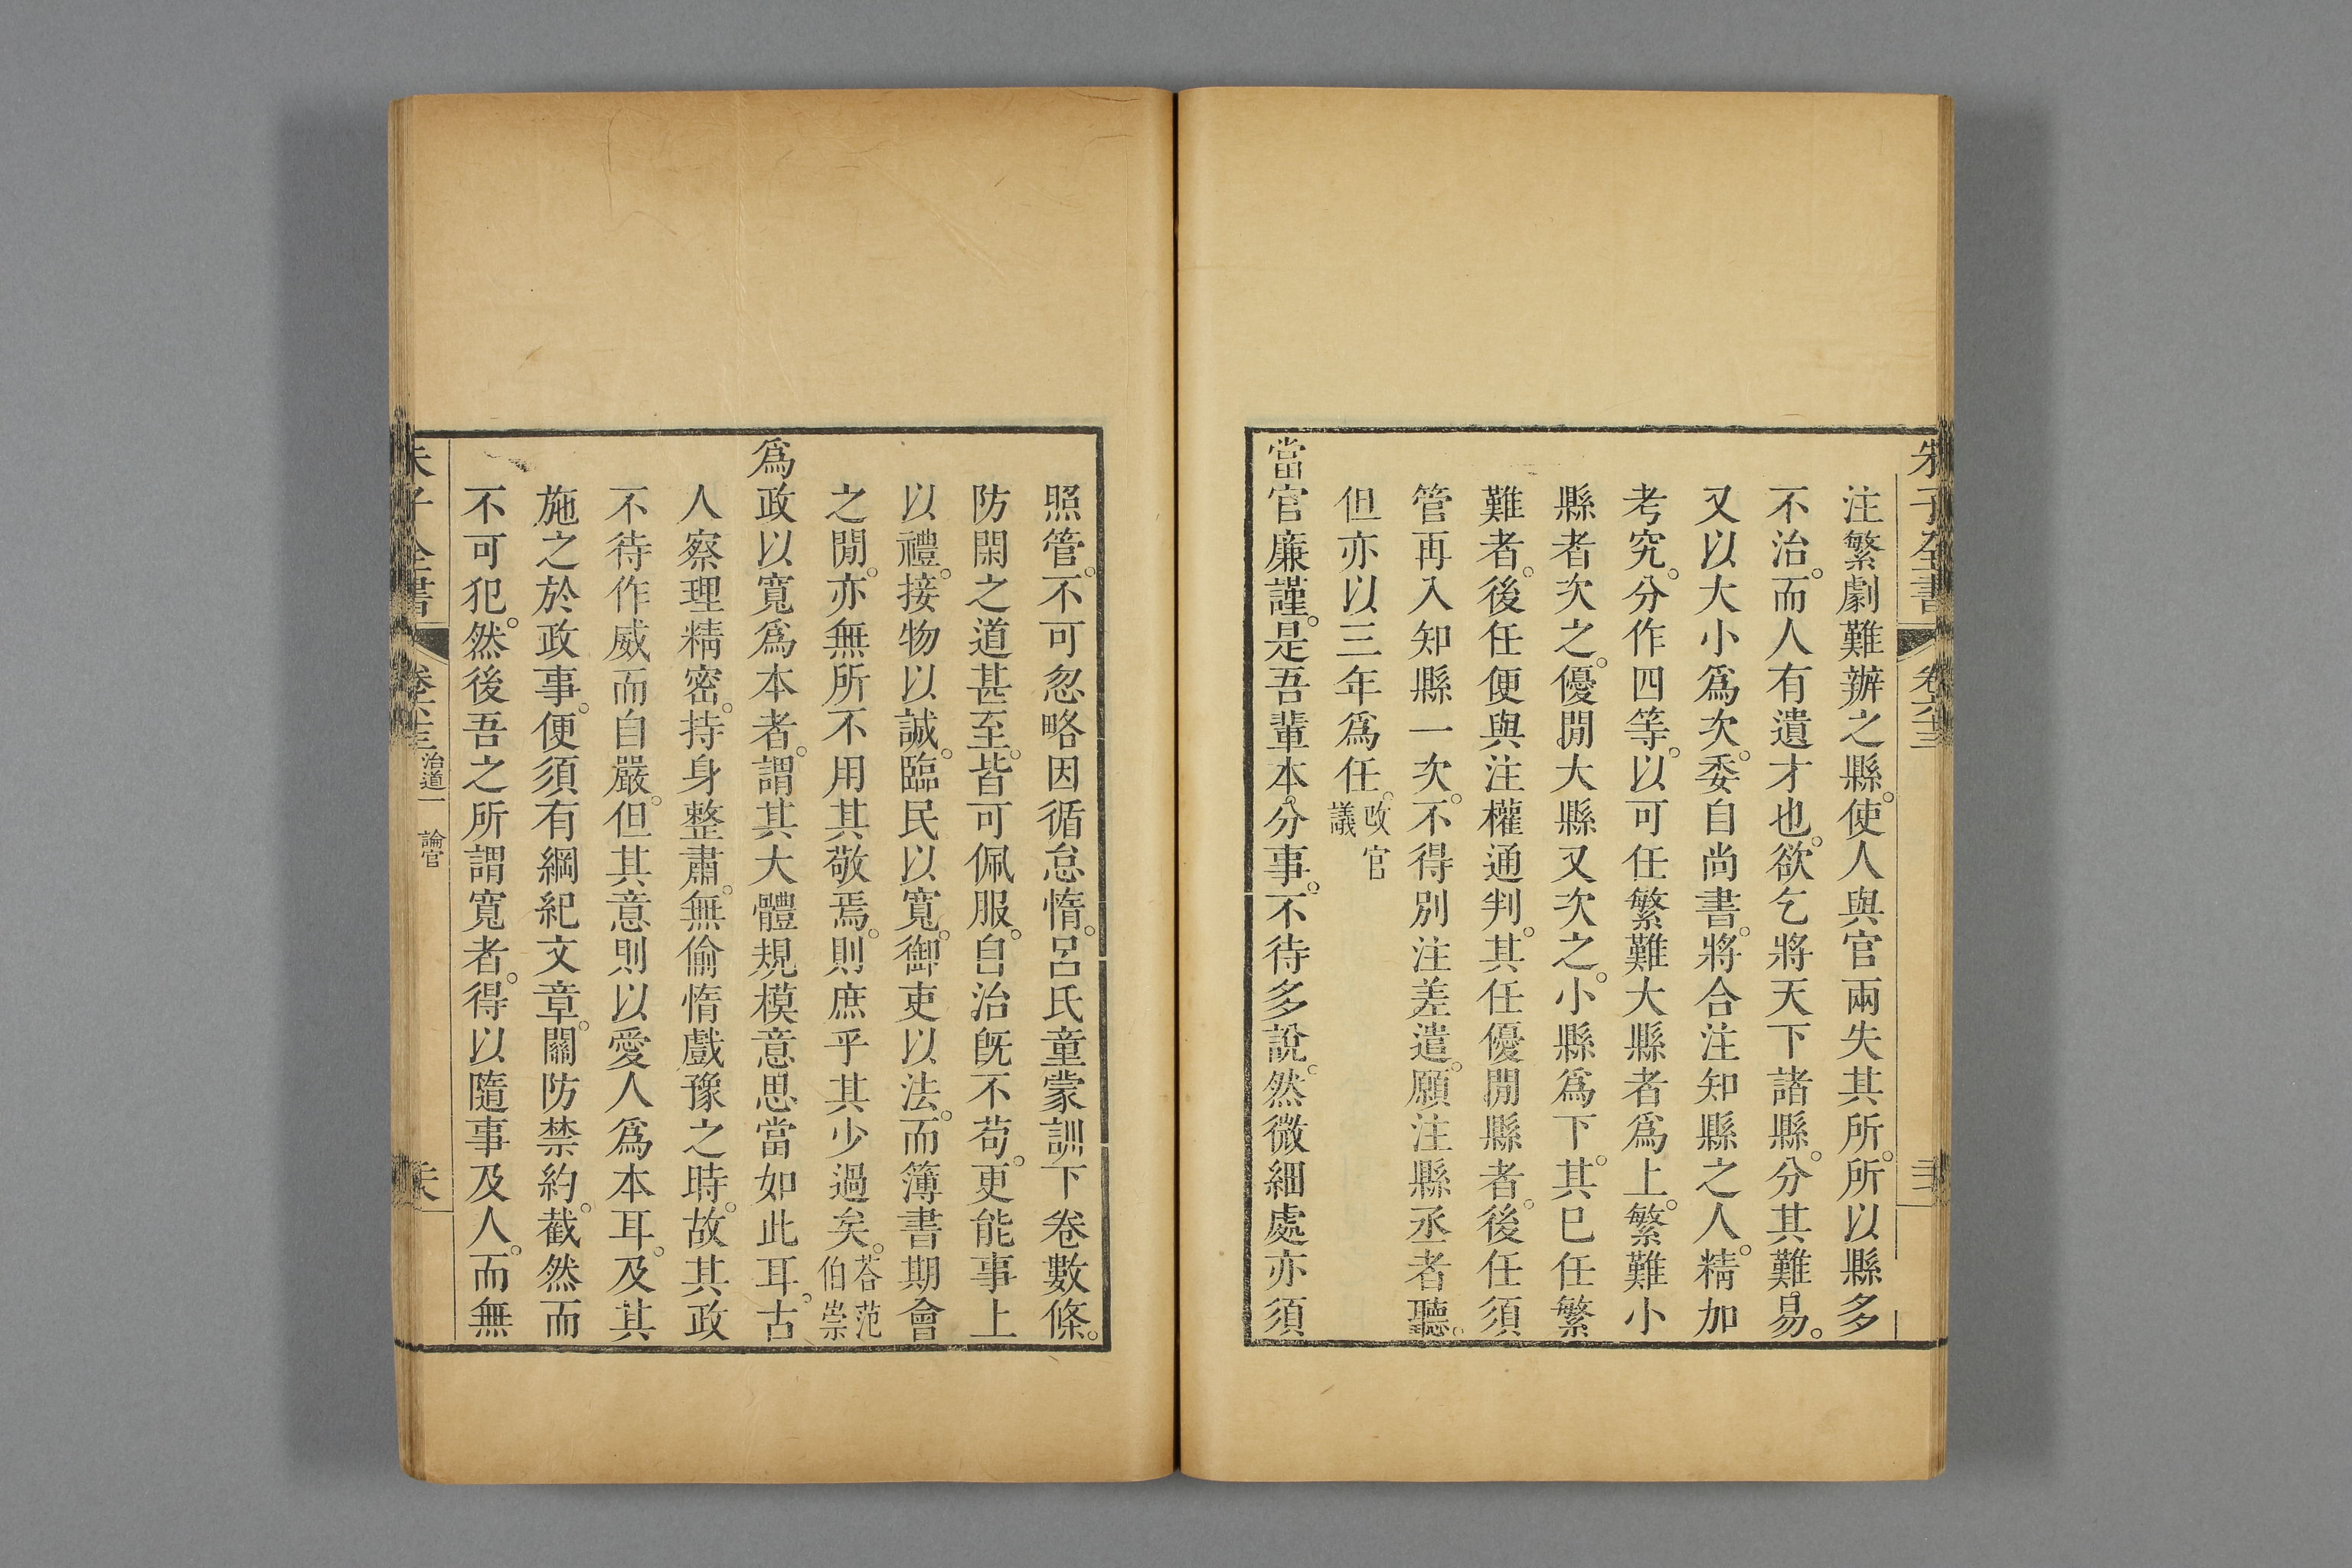 朱子全書 卷六十三
注繁劇難辦之縣。使人與官兩失其所。所以縣多
不治。而人有遺才也。欲乞將天下諸縣。分其難易。
又以大小爲次。委自尚書。將合注知縣之人。精加
考究。分作四等。以可任繁難大縣者爲上。繁難小
縣者次之。優閒大縣又次之。小縣爲下。其已任繁
難者。後任便與注權通判。其任優閒縣者。後任須
管再入知縣一次。不得別注差遣。願注縣丞者聽。
但亦以三年爲任。改官議
當官廉謹。是吾輩本分事。不待多說。然微細處亦須
照管。不可忽略因循怠惰。呂氏童蒙訓下卷數條。
防閑之道甚至。皆可佩服。自治既不苟。更能事上
以禮。接物以誠。臨民以寬。御吏以法。而簿書期會
之閒。亦無所不用其敬焉。則庶乎其少過矣。荅范伯崇
爲政以寬爲本者。謂其大體規模意思當如此耳。古
人察理精密。持身整肅。無偷惰戲豫之時。故其政
不待作威而自嚴。但其意則以愛人爲本耳。及其
施之於政事。便須有綱紀文章。關防禁約。截然而
不可犯。然後吾之所謂寬者。得以隨事及人。而無
朱子全書 卷六十三 治道一 論官